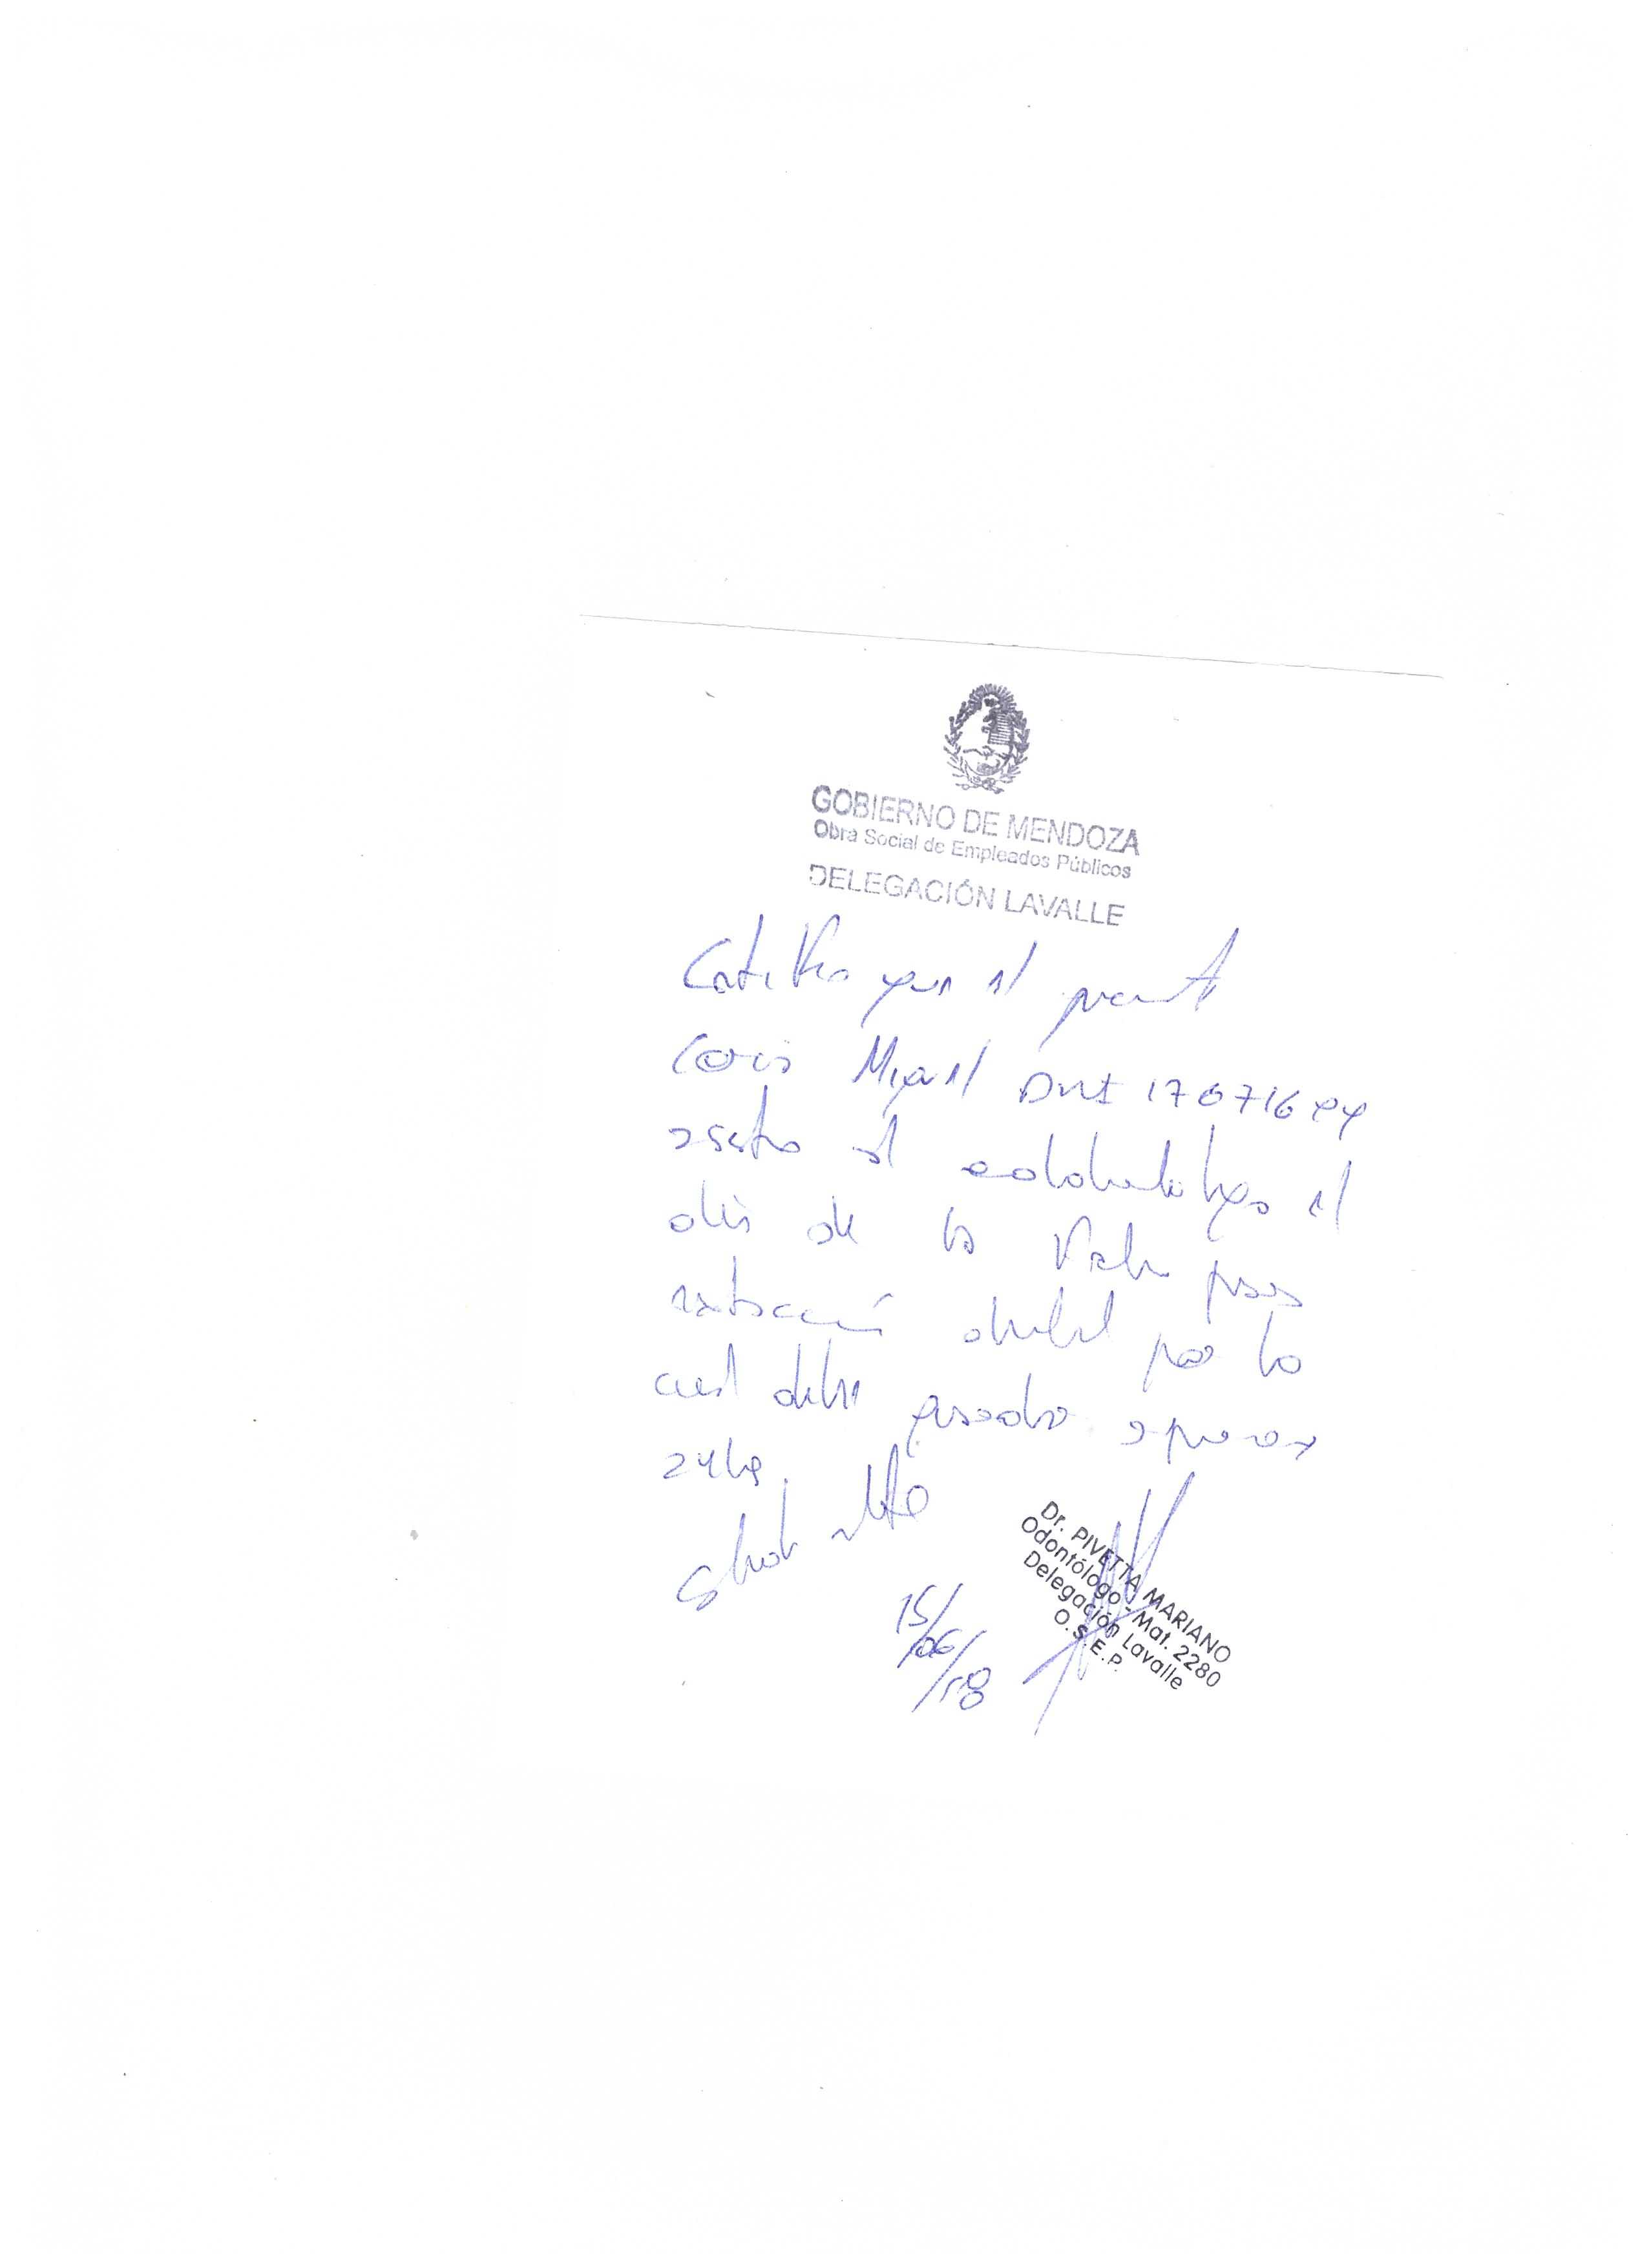 GOBIERNO DE MENDOZA
Obra Social de Empleados Públicos
DELEGACIÓN LAVALLE
Certifico que el presente
Miguel DNI
asistio al odontologo el
día de la fecha para
extracción dental por lo
cual debe guardar reposo
24 hs.
15/06/18
Dr. PIVETTA MARIANO
Odontólogo - Mat. 2280
Delegación Lavalle
O.S.E.P.